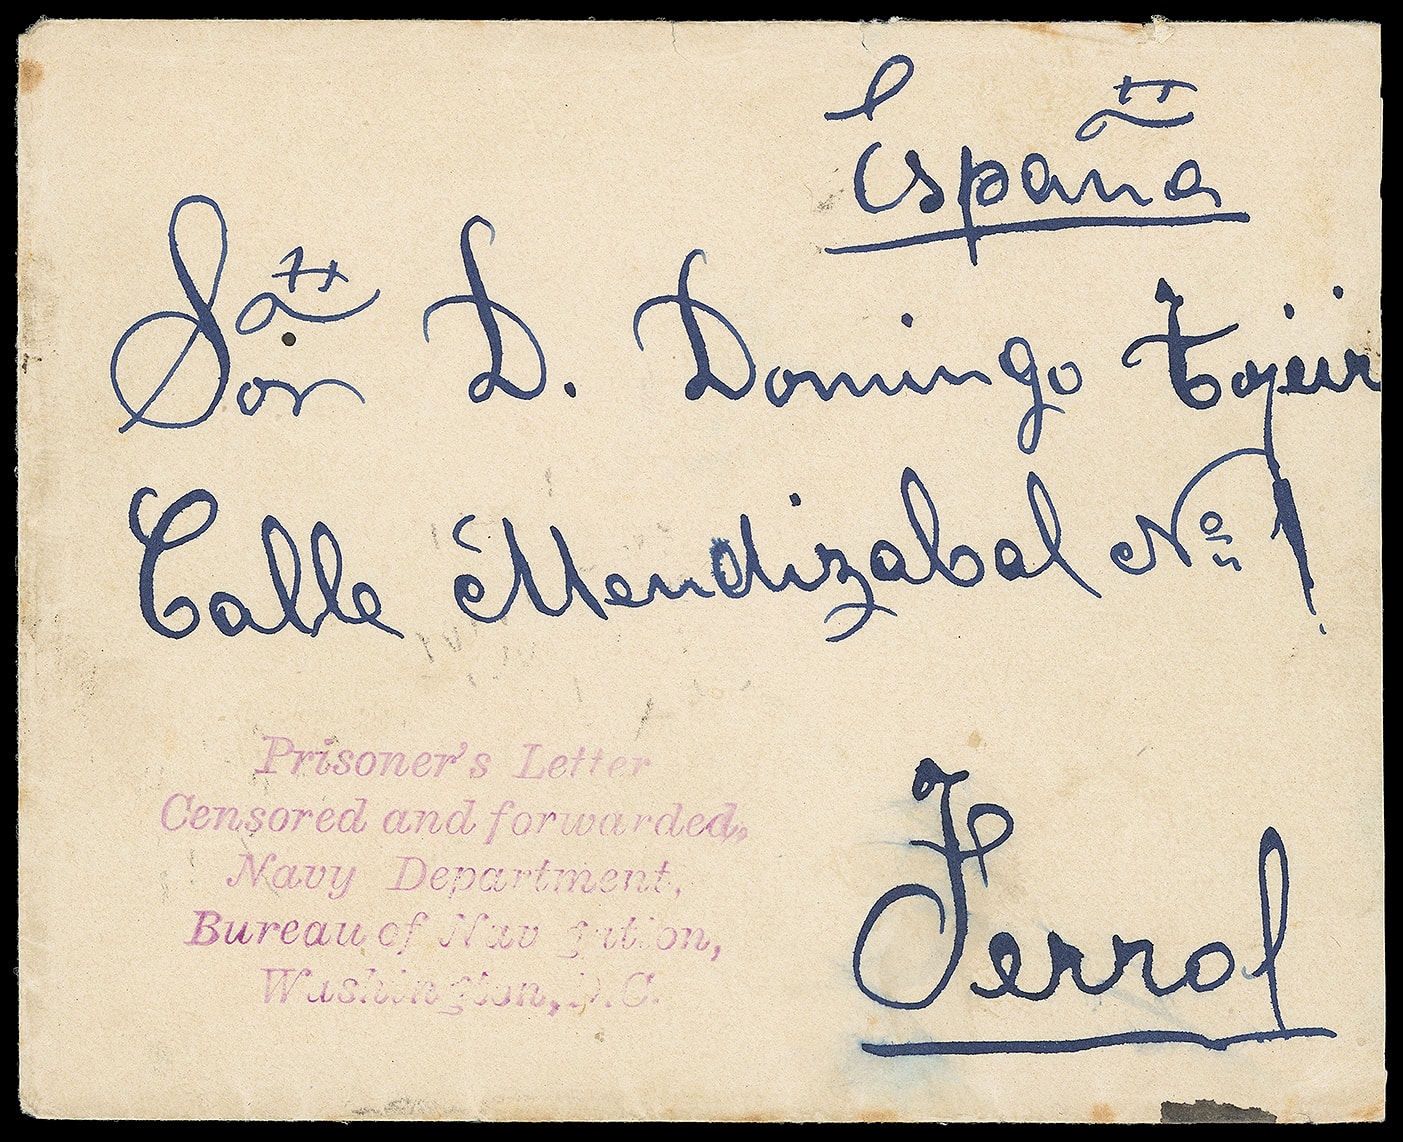 España
Sor D. Domingo Tojeir
Calle Mendizabal No 1
Ferrol
Prisoner's Letter
Censored and forwarded,
Navy Department,
Bureau of Navigation,
Washington, D.C.